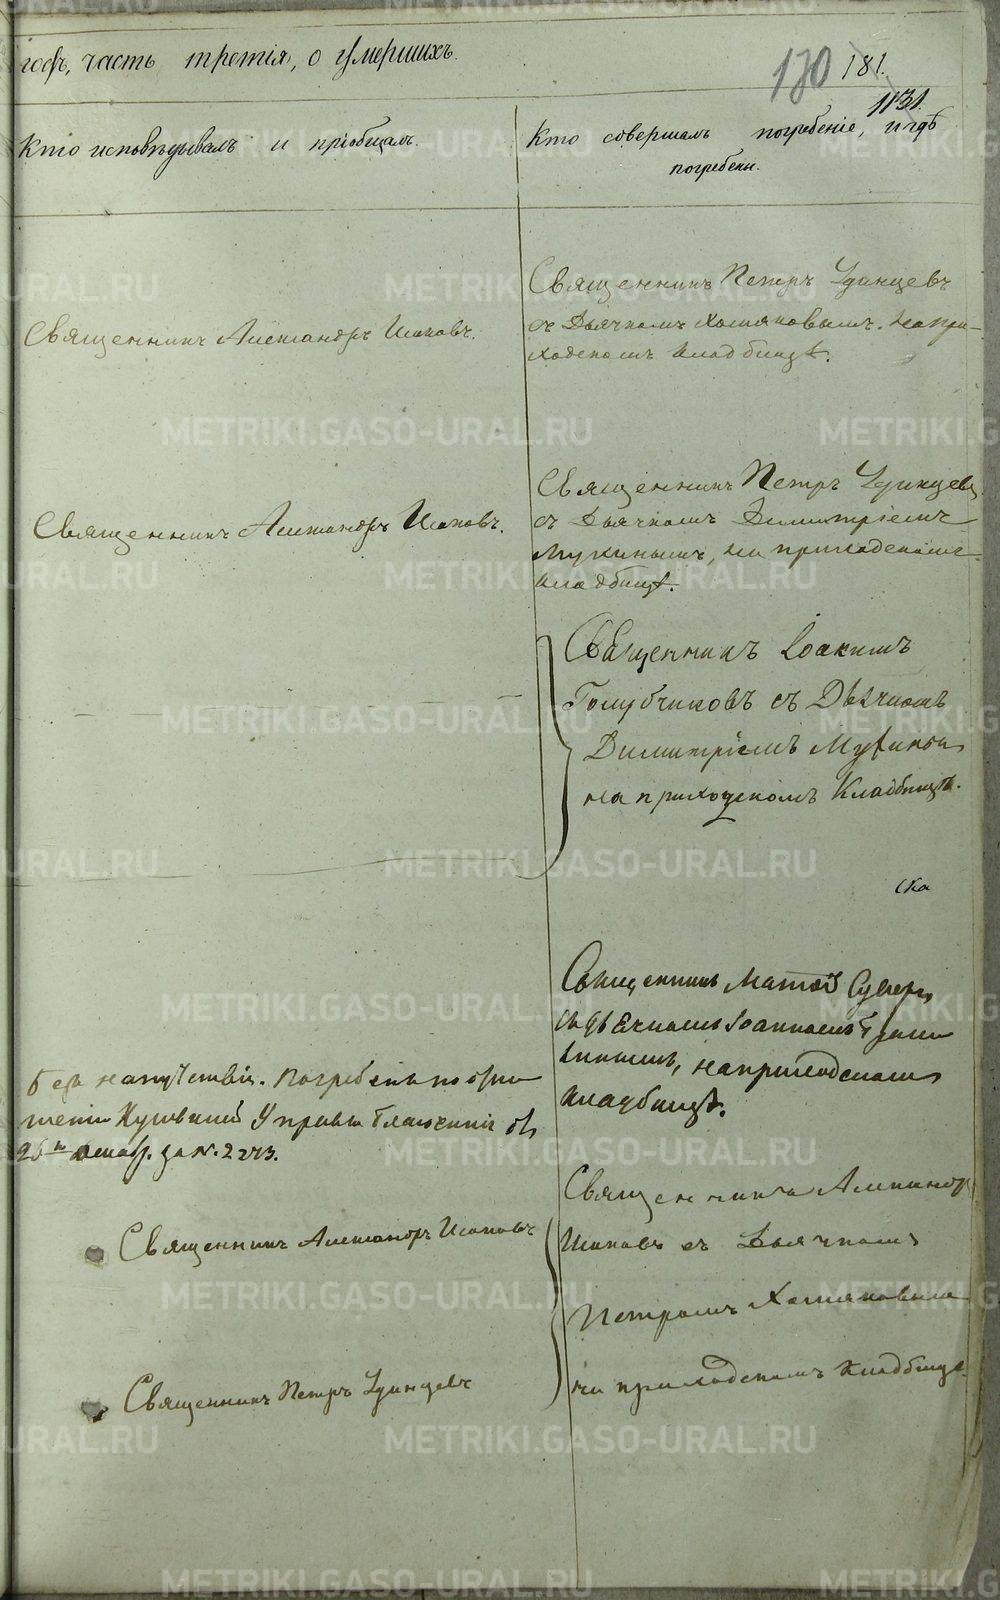 годъ, часть третія, о умершихъ.
130 181.
1131.
Кто исповѣдывалъ и пріобщалъ.
Кто совершалъ погребеніе, и гдѣ
погребены.
Священникъ Петръ Удинцевъ
съ Дьячкомъ Хомяковымъ. на при-
ходскомъ кладбищѣ.
Священникъ Александръ Исаковъ.
Священникъ Петръ Удинцевъ
съ Дьячкомъ Димитріемъ
Мукинымъ, на приходскомъ
кладбищѣ.
Священникъ Александръ Исаковъ.
Священникъ Іоакимъ
Голубчиковъ съ Дьячкомъ
Димитріемъ
на приходскомъ Кладбищѣ.
ска
Священникъ
Іоанномъ
на приходскомъ
кладбищѣ.
Безъ напутствія. Погребенъ по отно-
шенію Управы
26 за №. 2273.
Священникъ Александръ
Исаковъ съ Дьячкомъ
Петромъ Хомяковымъ
на приходскомъ кладбищѣ.
Священникъ Александръ Исаковъ
Священникъ Петръ Удинцевъ
METRIKI.GASO-URAL.RU